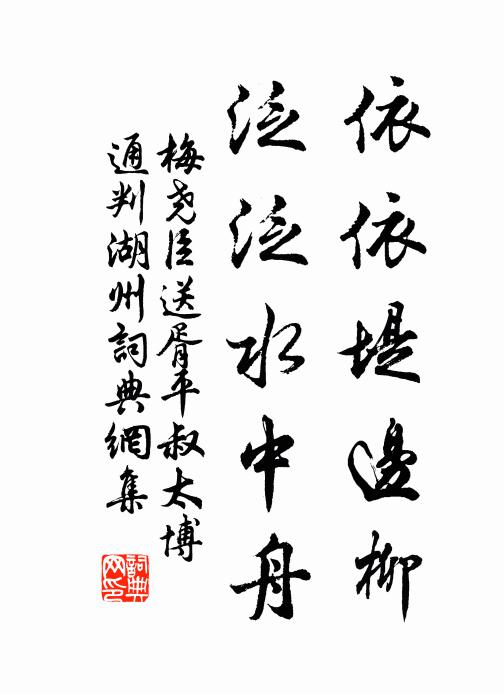 依依堤邊柳
泛泛水中舟
梅尧臣送胥平叔太博
通判湖州詞典網集
詞典
网印